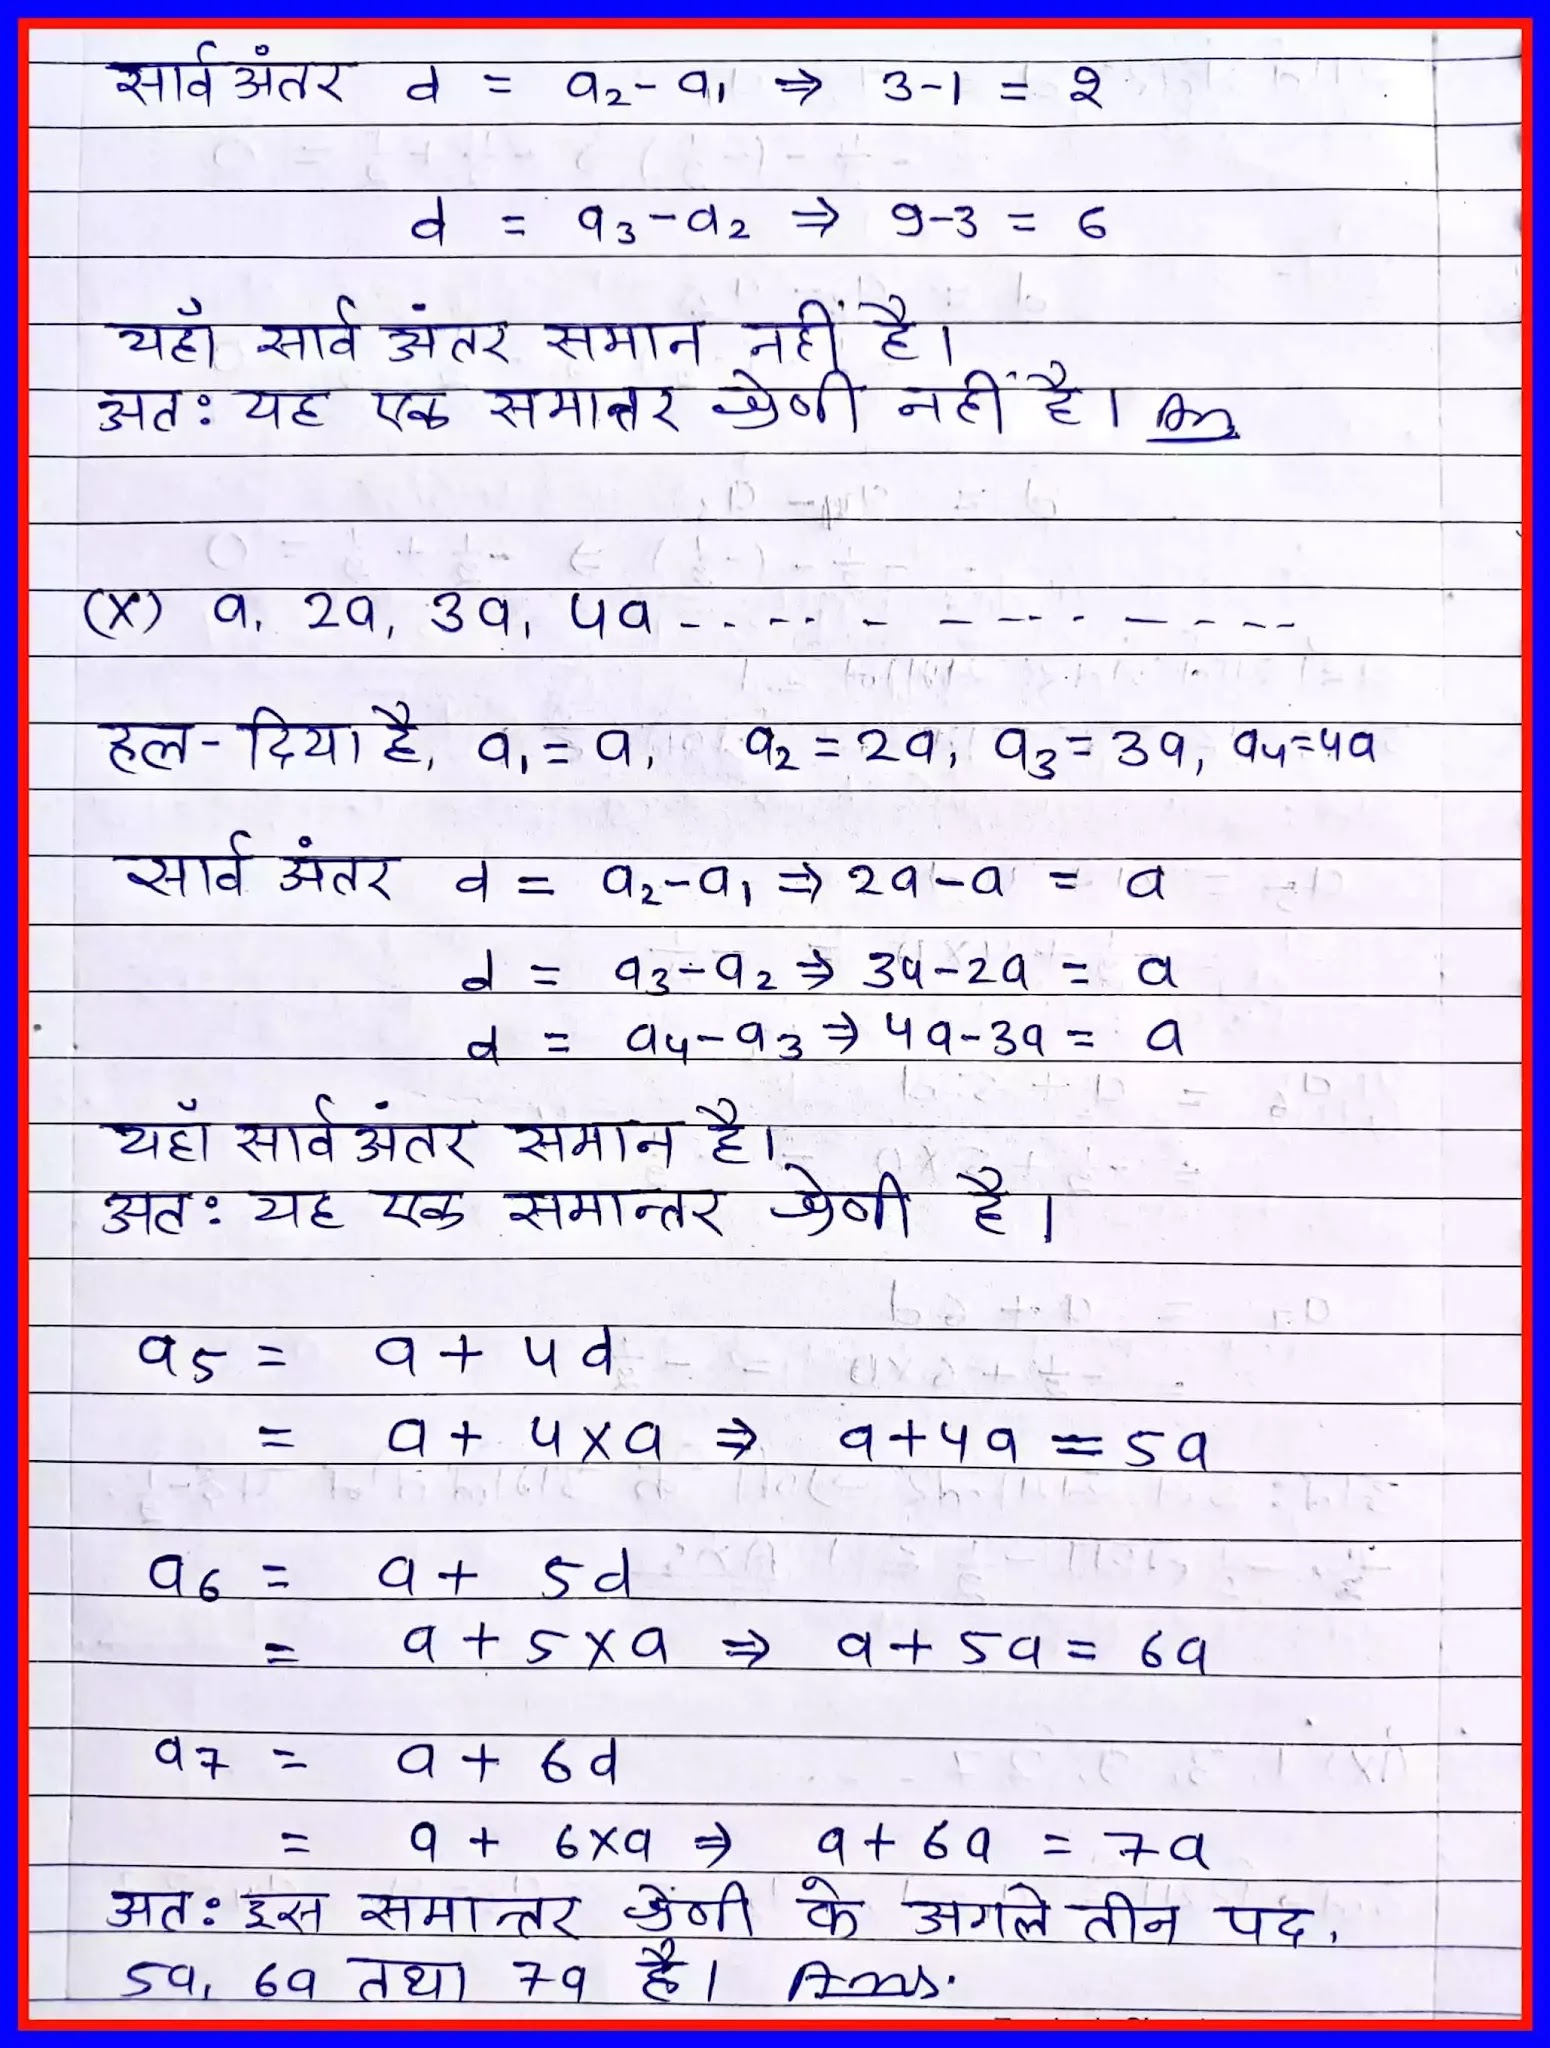 सार्व अंतर d = a₂-a₁ ⇒ 3-1 = 2
d = a₃-a₂ ⇒ 9-3 = 6
यहाँ सार्व अंतर समान नहीं है।
अतः यह एक समान्तर श्रेणी नहीं है। Ans
(x) a, 2a, 3a, 4a - - - - - - - - - - - - - -
हल- दिया है, a₁=a, a₂=2a, a₃=3a, a₄=4a
सार्व अंतर d = a₂-a₁ ⇒ 2a-a = a
d = a₃-a₂ ⇒ 3a-2a = a
d = a₄-a₃ ⇒ 4a-3a = a
यहाँ सार्व अंतर समान है।
अतः यह एक समान्तर श्रेणी है।
a₅ = a + 4d
= a + 4×a ⇒ a+4a = 5a
a₆ = a + 5d
= a + 5×a ⇒ a + 5a = 6a
a₇ = a + 6d
= a + 6×a ⇒ a + 6a = 7a
अतः इस समान्तर श्रेणी के अगले तीन पद,
5a, 6a तथा 7a है। Ans.